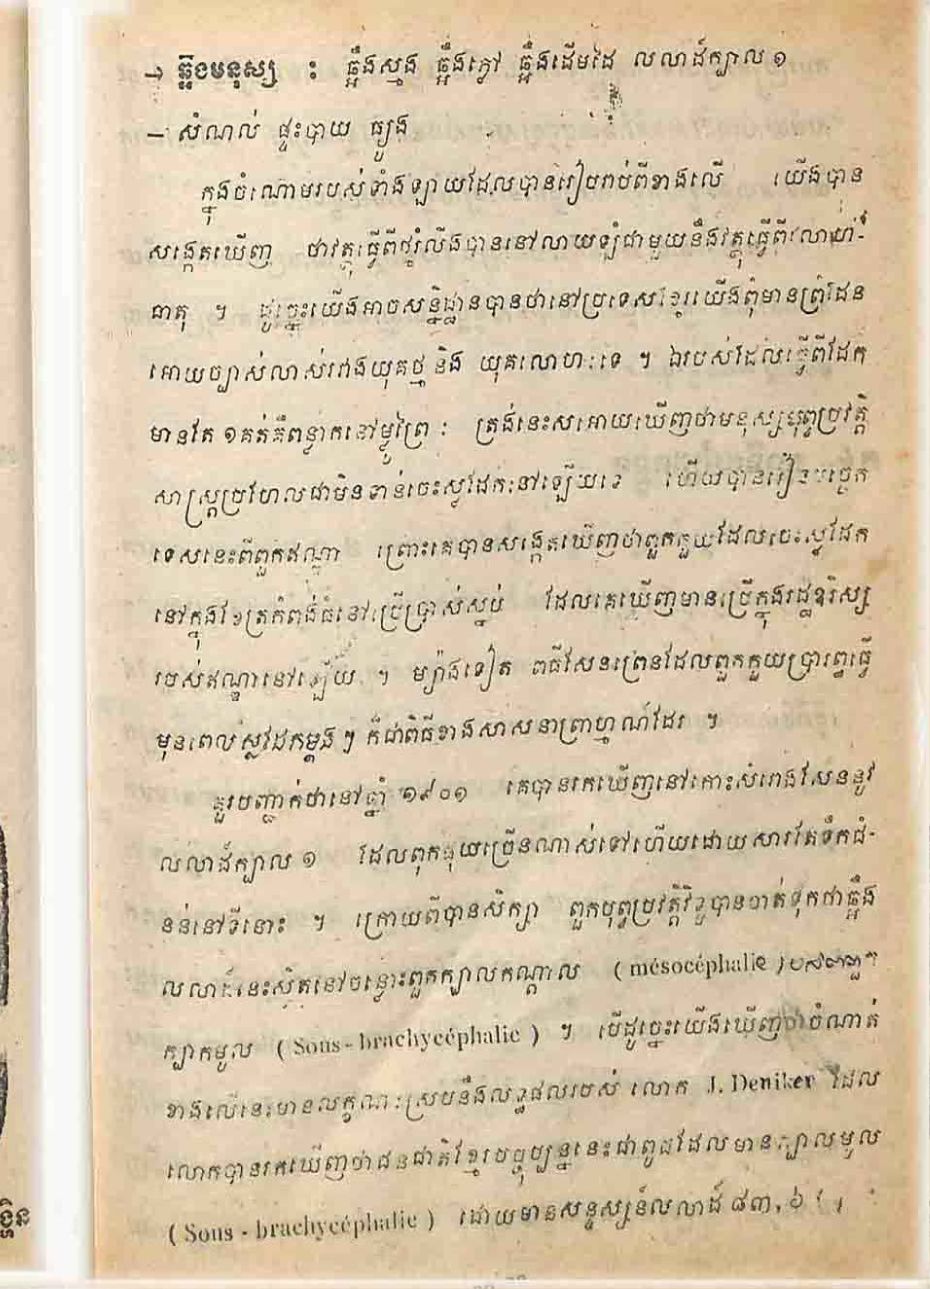 → ឆ្អឹងមនុស្ស : ឆ្អឹងស្មង ឆ្អឹងភ្លៅ ឆ្អឹងដើមដៃ លលាដ៍ក្បាល ១
– សំណល់ ផ្ទះបាយ ធ្យូង
ក្នុងចំណោមរបស់ទាំងឡាយដែលបានរៀបរាប់ពីខាងលើ យើងបាន
សង្កេតឃើញ ថាវត្ថុធ្វើពីថ្មរំលីងបាននៅលាយឡំជាមួយនឹងវត្ថុធ្វើពីលោហ៍-
ធាតុ ។ ដូច្នេះយើងអាចសន្និដ្ឋានបានថានៅប្រទេសខ្មែរយើងពុំមានព្រំដែន
អោយច្បាស់លាស់រវាងយុគថ្ម និង យុគលោហៈទេ ។ ឯរបស់ដែលធ្វើពីដែក
មានតែ ១គត់គឺពន្លាកនៅម្លូព្រៃ : ត្រង់នេះសអោយឃើញថាមនុស្សបុព្វប្រវត្តិ
សាស្ត្រប្រហែលជាមិនទាន់ចេះស្លដែកនៅឡើយទេ ហើយបានរៀនបច្ចេក
ទេសនេះពីពួកឥណ្ឌា ព្រោះគេបានសង្កេតឃើញថាពួកកួយដែលចេះស្លដែក
នៅក្នុងខែត្រកំពង់ធំនៅប្រើប្រាស់ស្នប់ ដែលគេឃើញមានប្រើក្នុងរដ្ឋឧរិស្ស
របស់ឥណ្ឌានៅឡើយ ។ ម្យ៉ាងទៀត ពិធីសែនព្រេនដែលពួកកួយប្រារព្ធធ្វើ
មុនពេលស្លដែកម្តងៗ ក៏ជាពិធីខាងសាសនាព្រាហ្មណ៍ដែរ ។
គួរបញ្ជាក់ថានៅឆ្នាំ ១៩០១ គេបានរកឃើញនៅកោះសំរោងសែននូវ
លលាដ៍ក្បាល ១ ដែលពុកផុយច្រើនណាស់ទៅហើយដោយសារតែទឹកជំ-
នន់នៅទីនោះ ។ ក្រោយពីបានសិក្សា ពួកបុព្វប្រវត្តិវិទូបានចាត់ទុកថាឆ្អឹង
លលាដ៍នេះស្ថិតនៅចន្លោះពួកក្បាលកណ្តាល ( mésocéphalie )
ក្បាកមូល ( Sous - brachycéphalie ) ។ បើដូច្នេះយើងឃើញថាចំណាត់
ខាងលើនេះមានលក្ខណៈស្របនឹងលទ្ធផលរបស់ លោក J. Deniker ដែល
លោកបានរកឃើញថាជនជាតិខ្មែរបច្ចុប្បន្ននេះជាពូជដែលមានក្បាលមូល
( Sous - brachycéphalie ) ដោយមានសន្ទស្សន៍លលាដ៍ ៨៣,៦